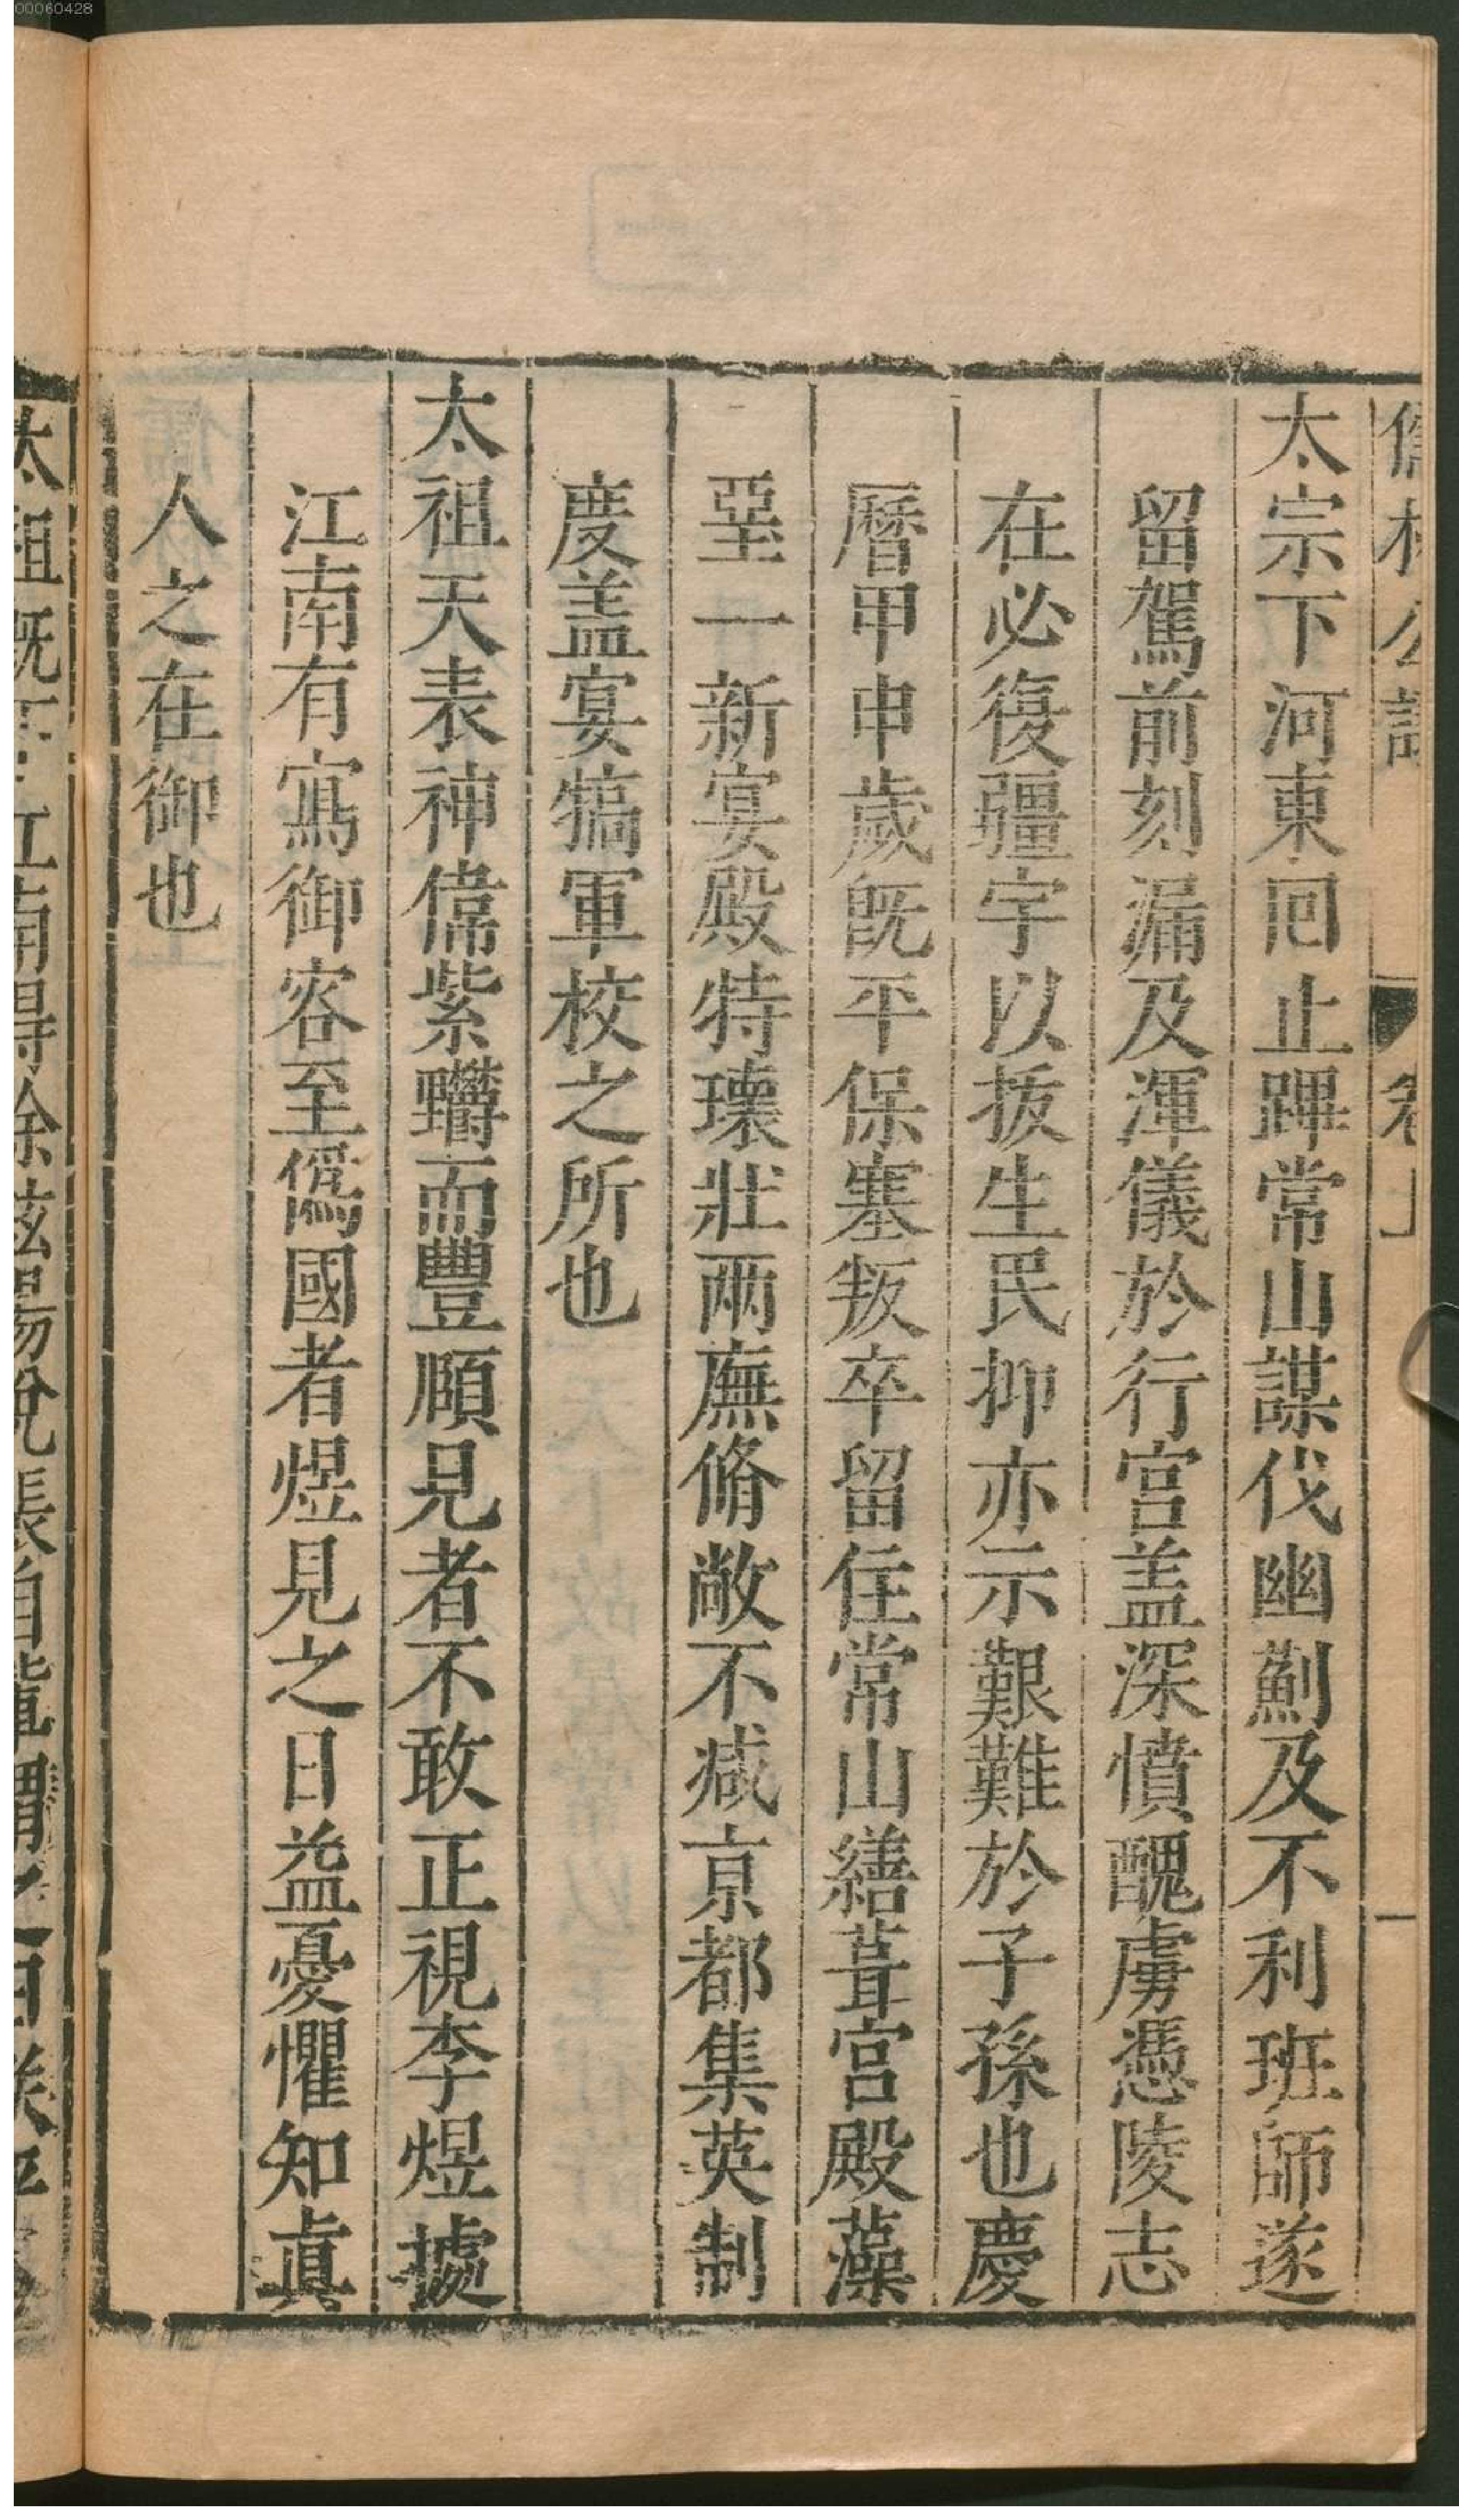 00060428
儒林公議 卷上 一
太宗下河東囘止蹕常山謀伐幽薊及不利班師遂
留駕前刻漏及渾儀於行宮盖深憤醜虜憑陵志
在必復疆宇以拔生民抑亦示艱難於子孫也慶
曆甲申歲旣平保塞叛卒留住常山繕葺宮殿藻
堊一新宴殿特瓌壯兩廡脩敞不减亰都集英制
度盖宴犒軍校之所也
太祖天表神偉紫𪒠而豐頤見者不敢正視李煜據
江南有寫御容至僞國者煜見之日益憂懼知眞
人之在御也
太祖旣下江南得徐鉉湯悅張自